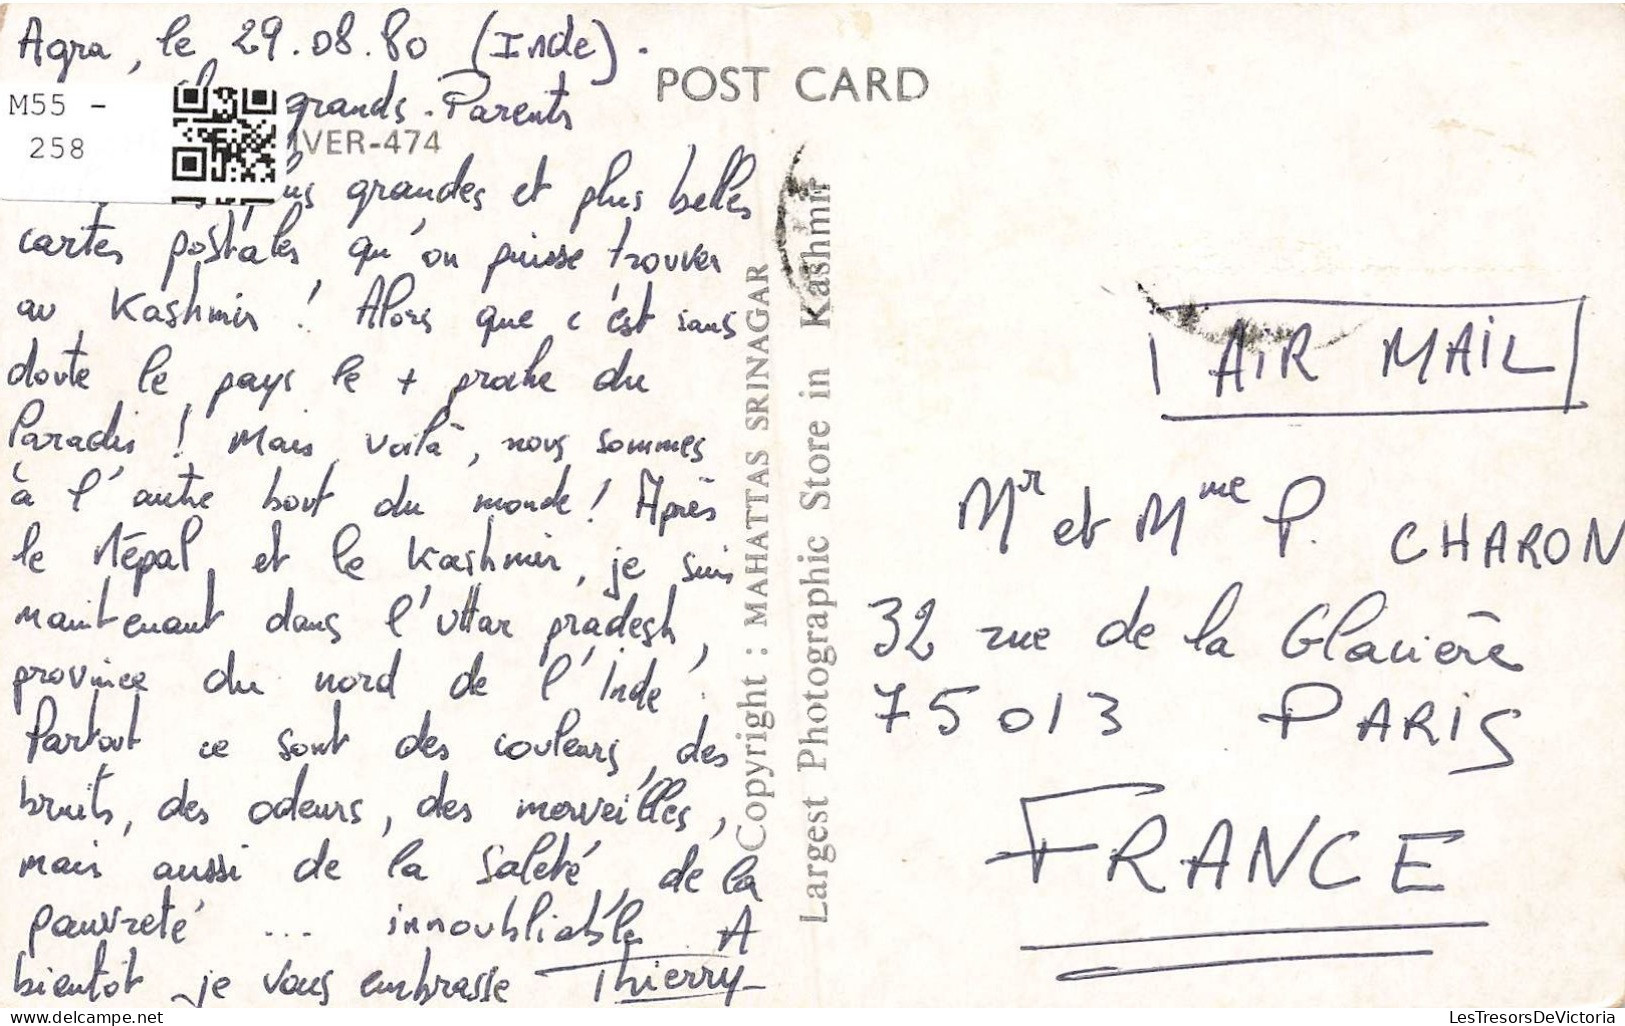 Agra, le 29.08.80 (Inde).
grands-Parents
M55 -
258
VER-474
grandes et plus belles
cartes postales qu'on puisse trouver
au Kashmir ! Alors que c'est sans
doute le pays le + proche du
Paradis ! Mais voilà, nous sommes
à l'autre bout du monde ! Après
le Népal, et le Kashmir, je suis
maintenant dans l'Uttar pradesh,
province du nord de l'Inde.
Partout ce sont des couleurs, des
bruits, des odeurs, des merveilles,
mais aussi de la saleté, de la
pauvreté ... innoubliable. A
bientôt je vous embrasse Thierry
POST CARD
Copyright : MAHATTAS SRINAGAR
Largest Photographic Store in Kashmir
AIR MAIL
Mr et Mme P. CHARON
32 rue de la Glacière
75013 PARIS
FRANCE
delcampe.net
LesTresorsDeVictoria